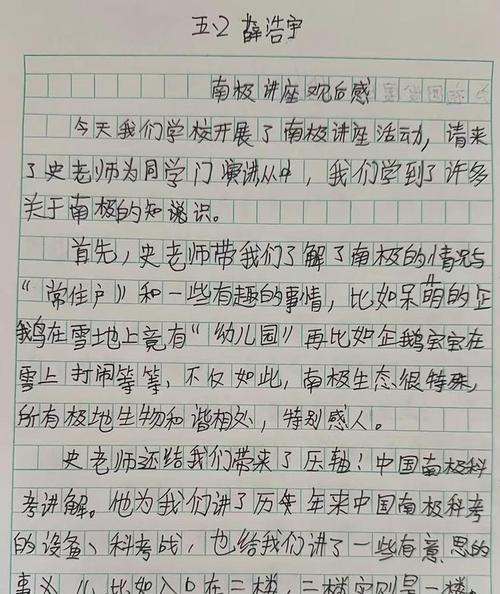 五.2 薛浩宇
南极讲座观后感
今天我们学校开展了南极讲座活动，请来
了史老师为同学门演讲从中，我们学到了许多
关于南极的知识。
首先，史老师带我们了解了南极的情况与
“常住户”和一些有趣的事情，比如呆萌的企
鹅在雪地上竟有“幼儿园”再比如企鹅宝宝在
雪上打闹等等，不仅如此，南极生态很特殊，
所有极地生物和谐相处，特别感人。
史老师还给我们带来了压轴！中国南极科
考讲解。他为我们讲了历年来中国南极科考
的设备、科考战，也给我们讲了一些有意思的
比如入口在二楼，二楼实则是一楼